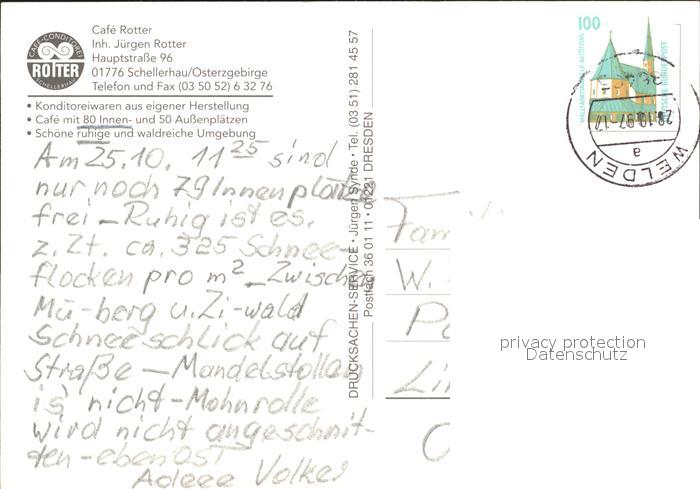 Café Rotter
Inh. Jürgen Rotter
Hauptstraße 96
01776 Schellerhau/Osterzgebirge
Telefon und Fax (03 50 52) 6 32 76
CAFÉ-CONDITOREI
ROTTER
SCHELLERHAU
• Konditoreiwaren aus eigener Herstellung
• Café mit 80 Innen- und 50 Außenplätzen
• Schöne ruhige und waldreiche Umgebung
Am 25.10. 11 25 sind
nur noch 79 Innenplätze
frei – Ruhig ist es.
z. Zt. ca. 325 Schnee-
flocken pro m² – Zwischen
Mü-berg u. Zi-wald
Schneeschlick auf
Straße – Mandelstollen
is' nicht – Mohnrolle
wird nicht angeschnit-
ten – eben OST
Adeee Volker
DRUCKSACHEN-SERVICE • Jürgen Synde • Tel. (03 51) 281 45 57
Postfach 36 01 11 • 01221 DRESDEN
100
WALLFAHRTSKAPELLE ALTÖTTING
DEUTSCHE BUNDESPOST
28.10.97-17
a
WELDEN
Fam
W.
privacy protection
Datenschutz